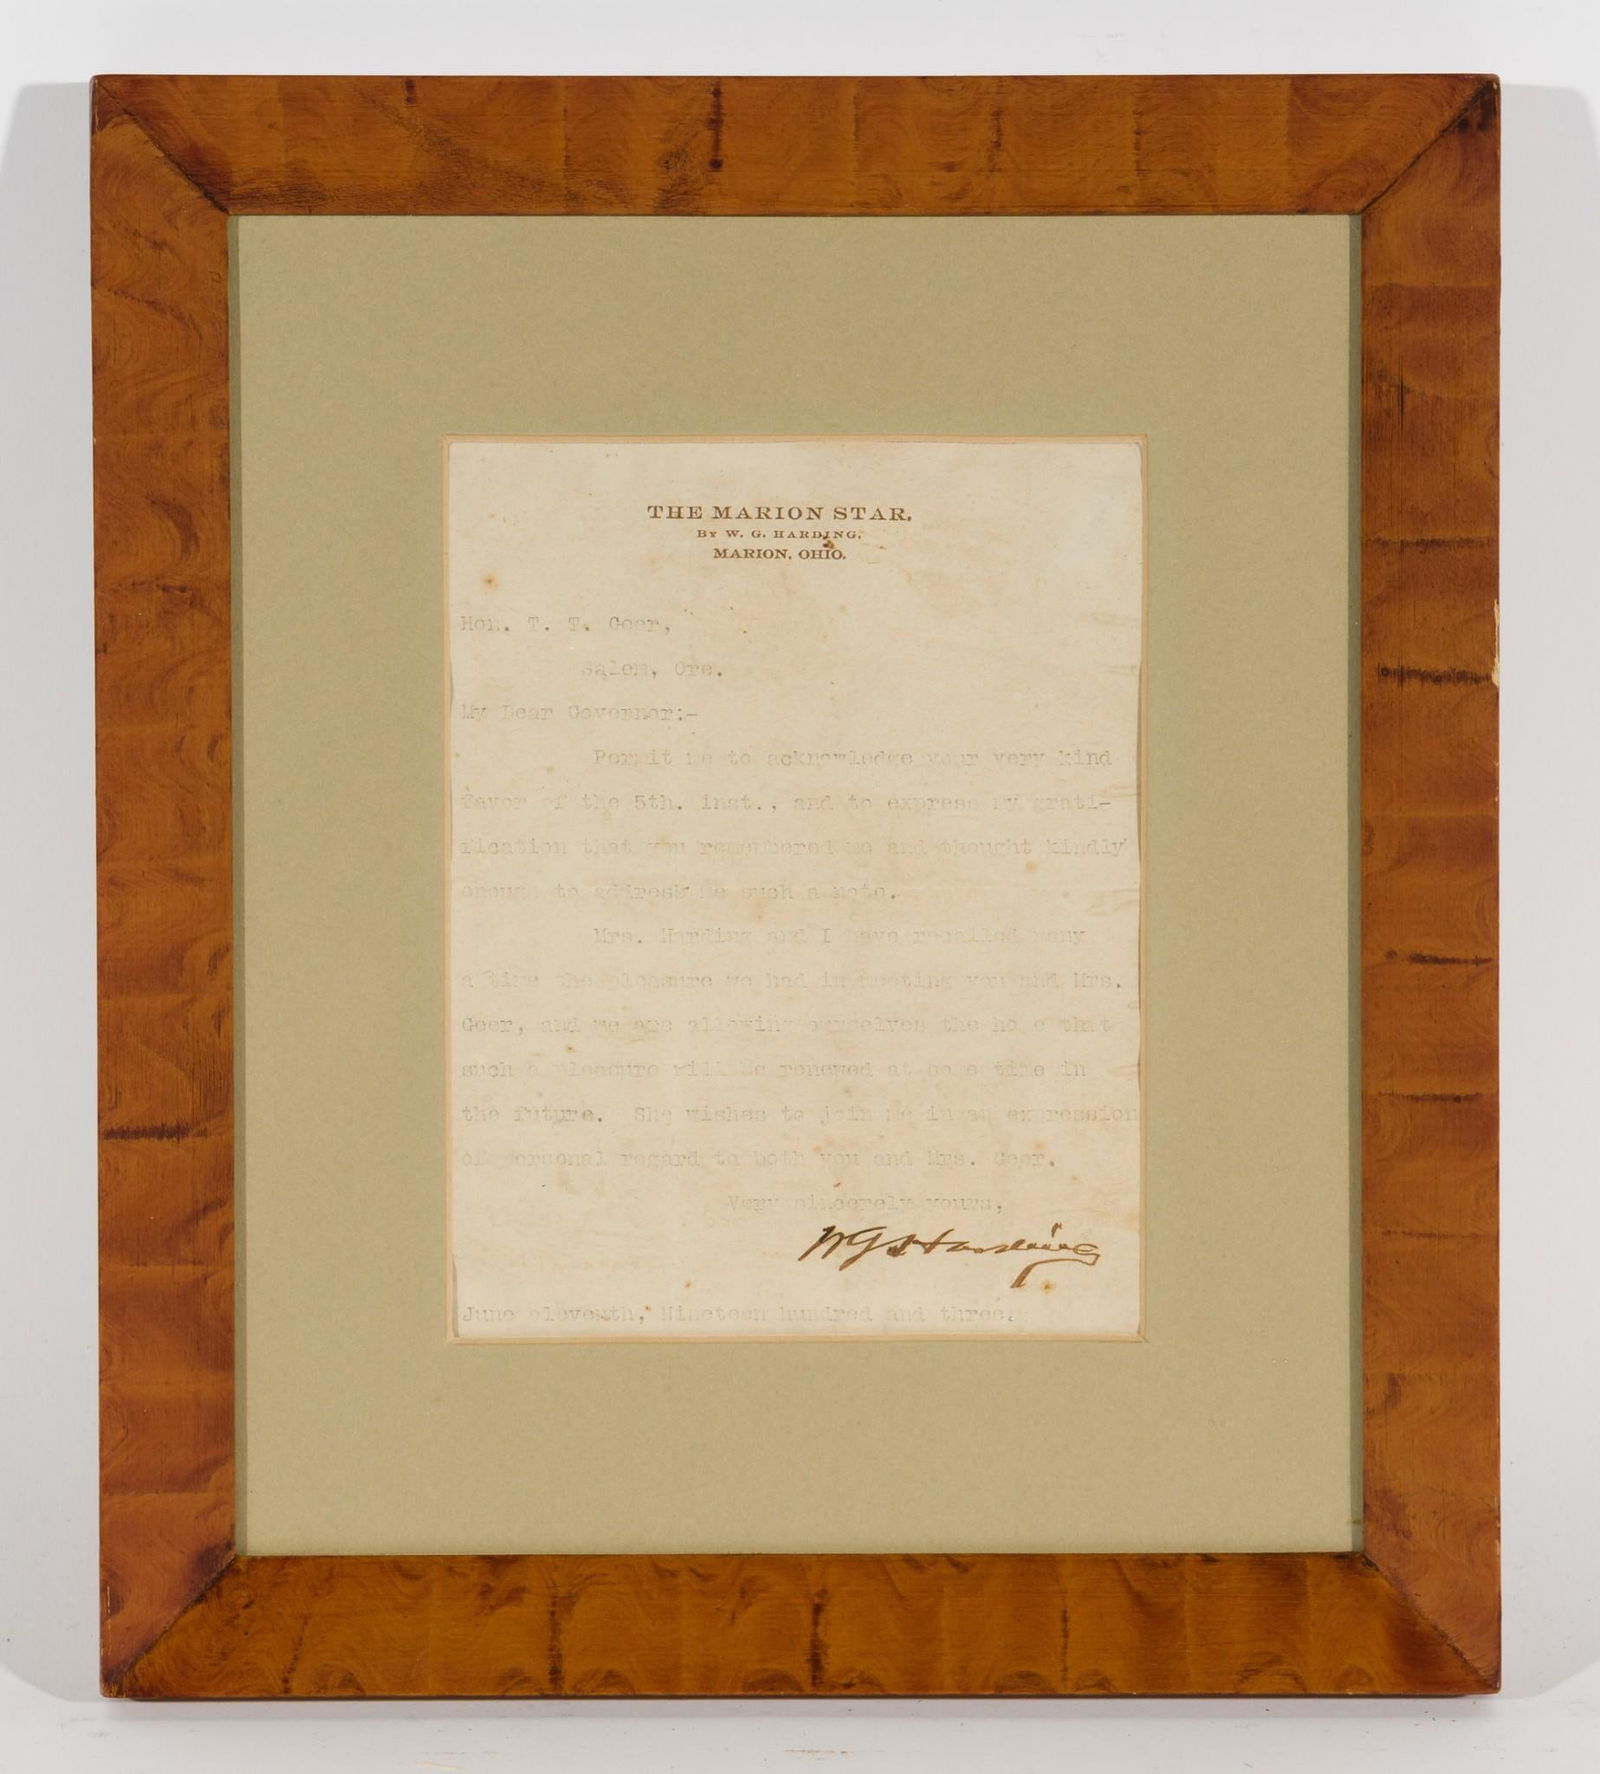 THE MARION STAR.
BY W. G. HARDING.
MARION, OHIO.
Hon. T. T. Geer,
Salem, Ore.
My Dear Governor:-
Permit me to acknowledge your very kind
favor of the 5th. inst., and to express my grati-
fication that you remembered me and thought kindly
enough to address me such a note.
Mrs. Harding and I have recalled many
a time the pleasure we had in meeting you and Mrs.
Geer, and we are allowing ourselves the hope that
such a pleasure will be renewed at some time in
the future. She wishes to join me in an expression
of personal regard to both you and Mrs. Geer.
Very sincerely yours,
WG Harding
June eleventh, Nineteen hundred and three.